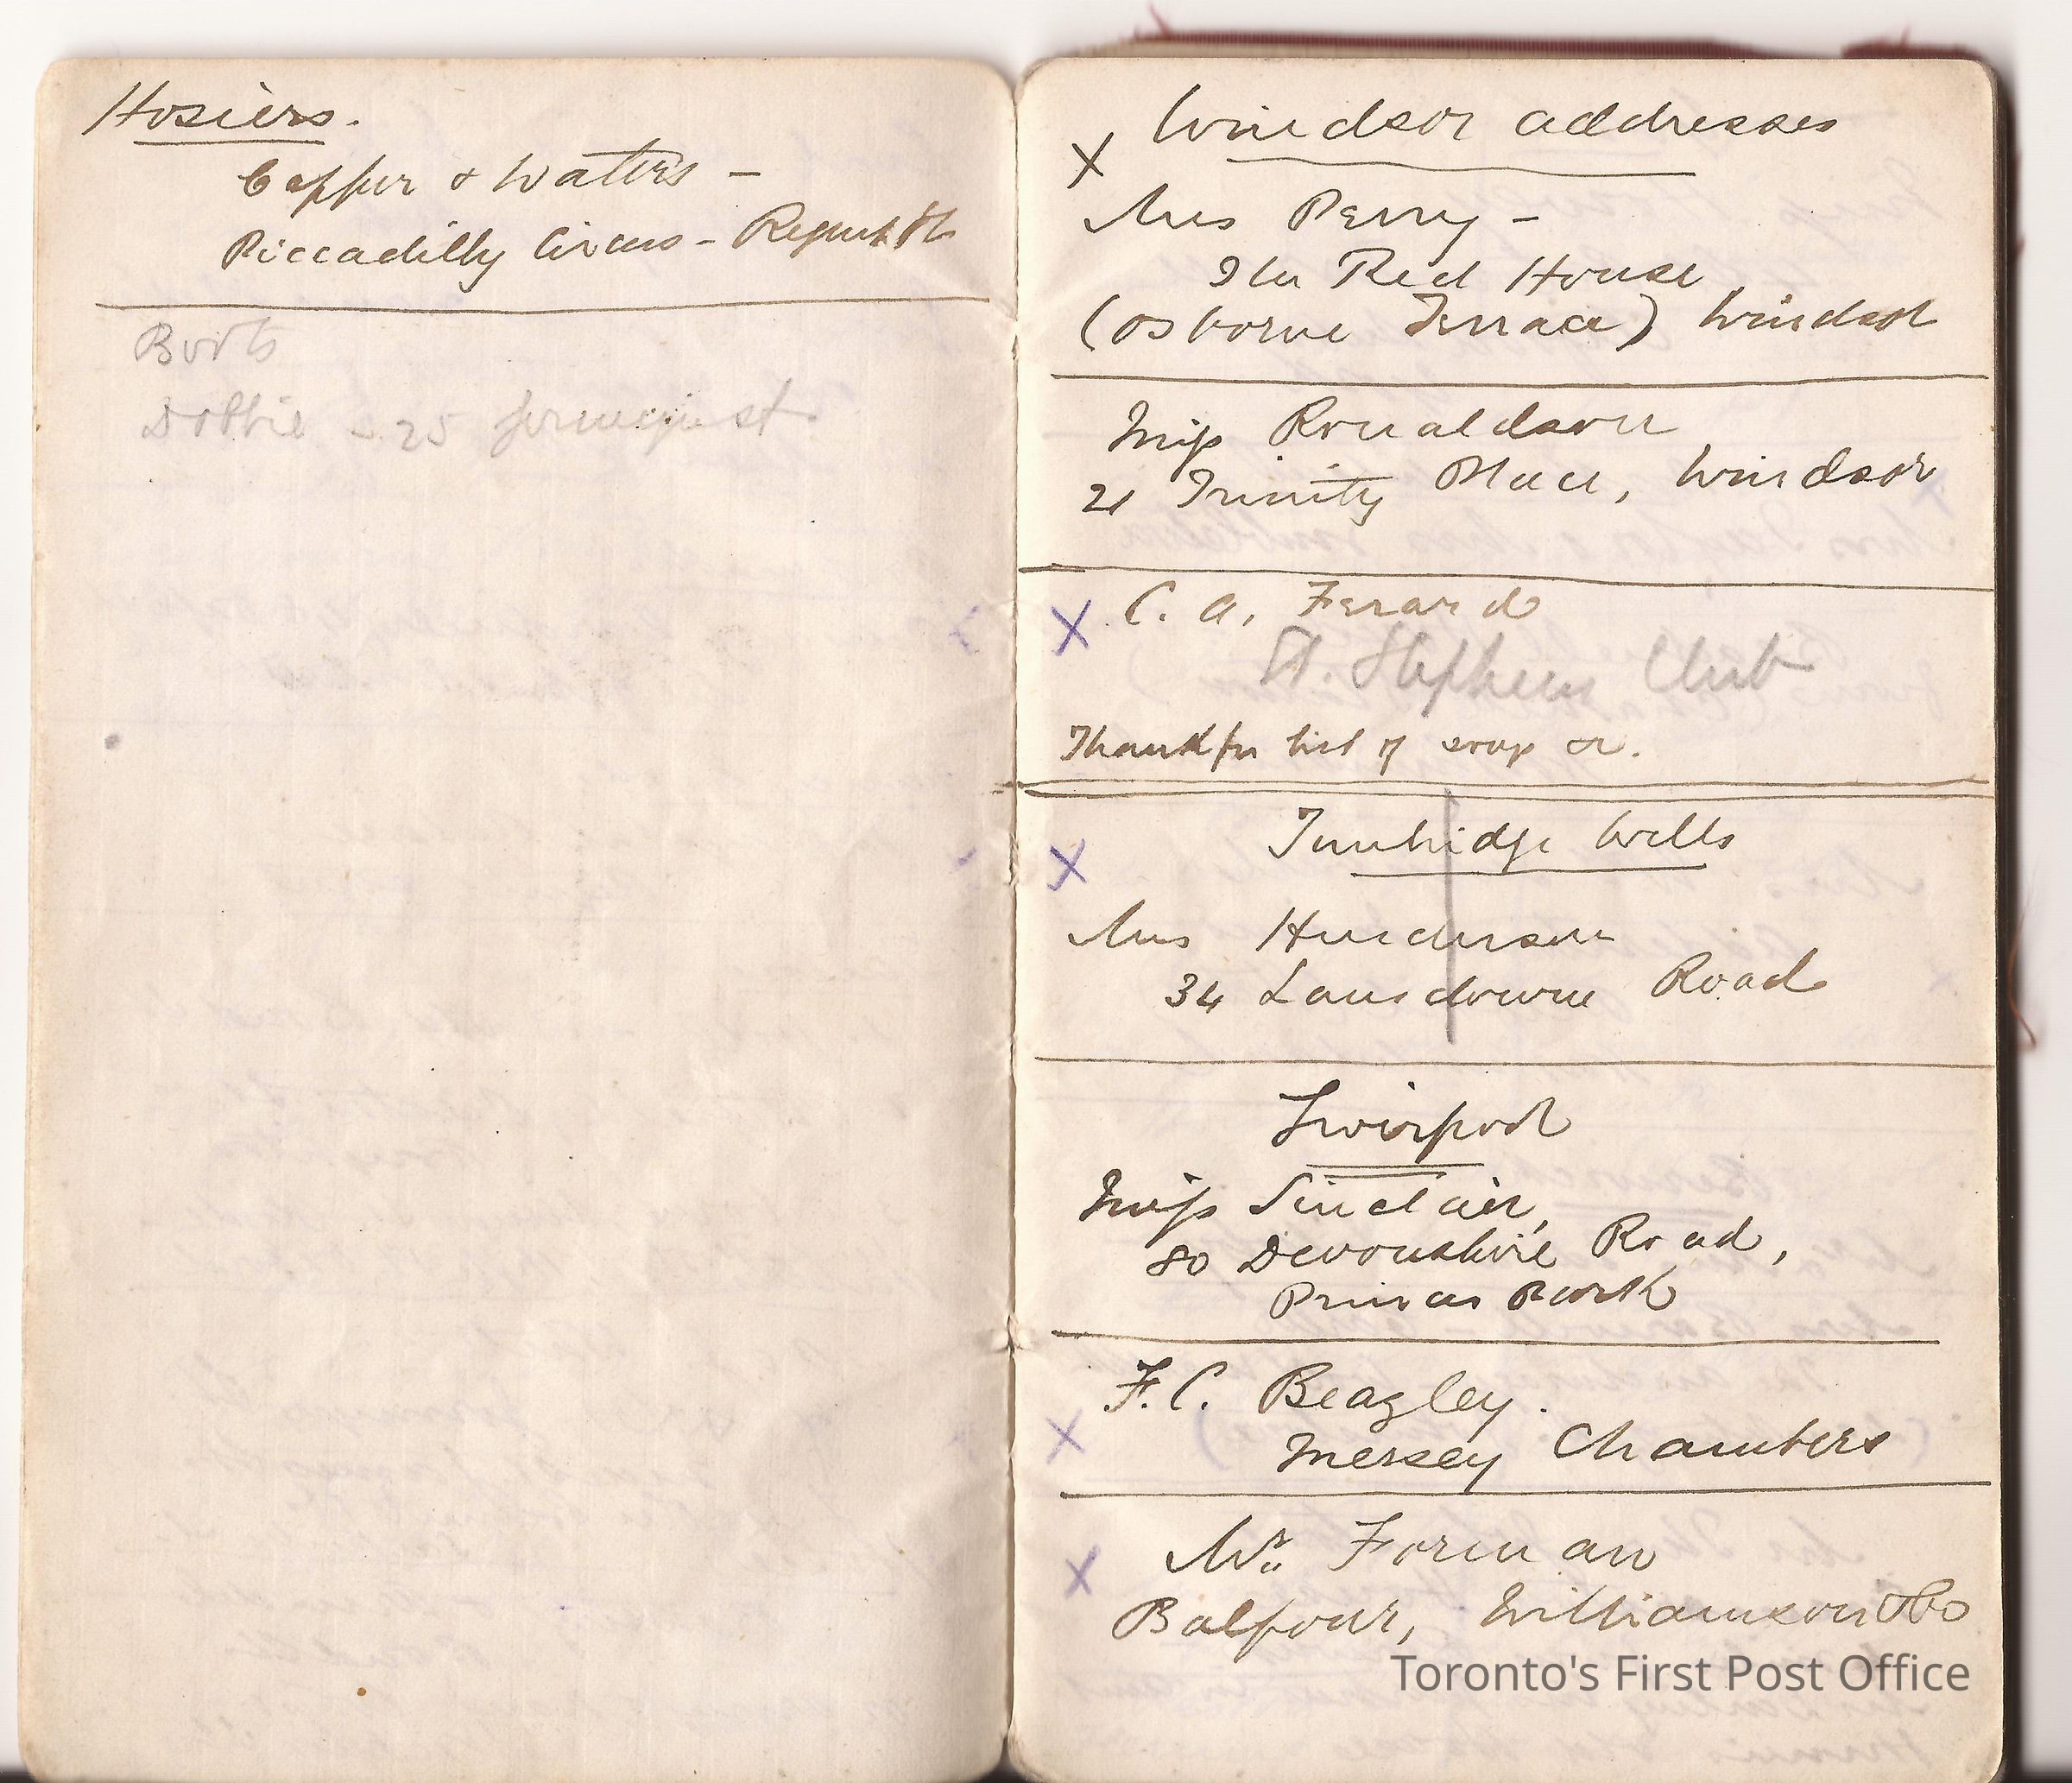 Hosiers.
Capper & Waters -
Piccadilly Circus - Regent St
Boots
Dobbie - 25 Jermyn st
Windsor addresses
X
Mrs Perry -
The Red House
(Osborne Terrace) Windsor
Miss Ronaldson
21 Trinity Place, Windsor
X C. A. Ferard
St. Stephens Club
Thank for list of
Tunbridge Wells
X
Mrs Henderson
34 Lansdowne Road
Liverpool
Miss Sinclair,
80 Devonshire Road,
Princes Park
F. C. Beazley.
X Mersey Chambers
X Mr. Forman
Balfour, Williamson & Co
Toronto's First Post Office